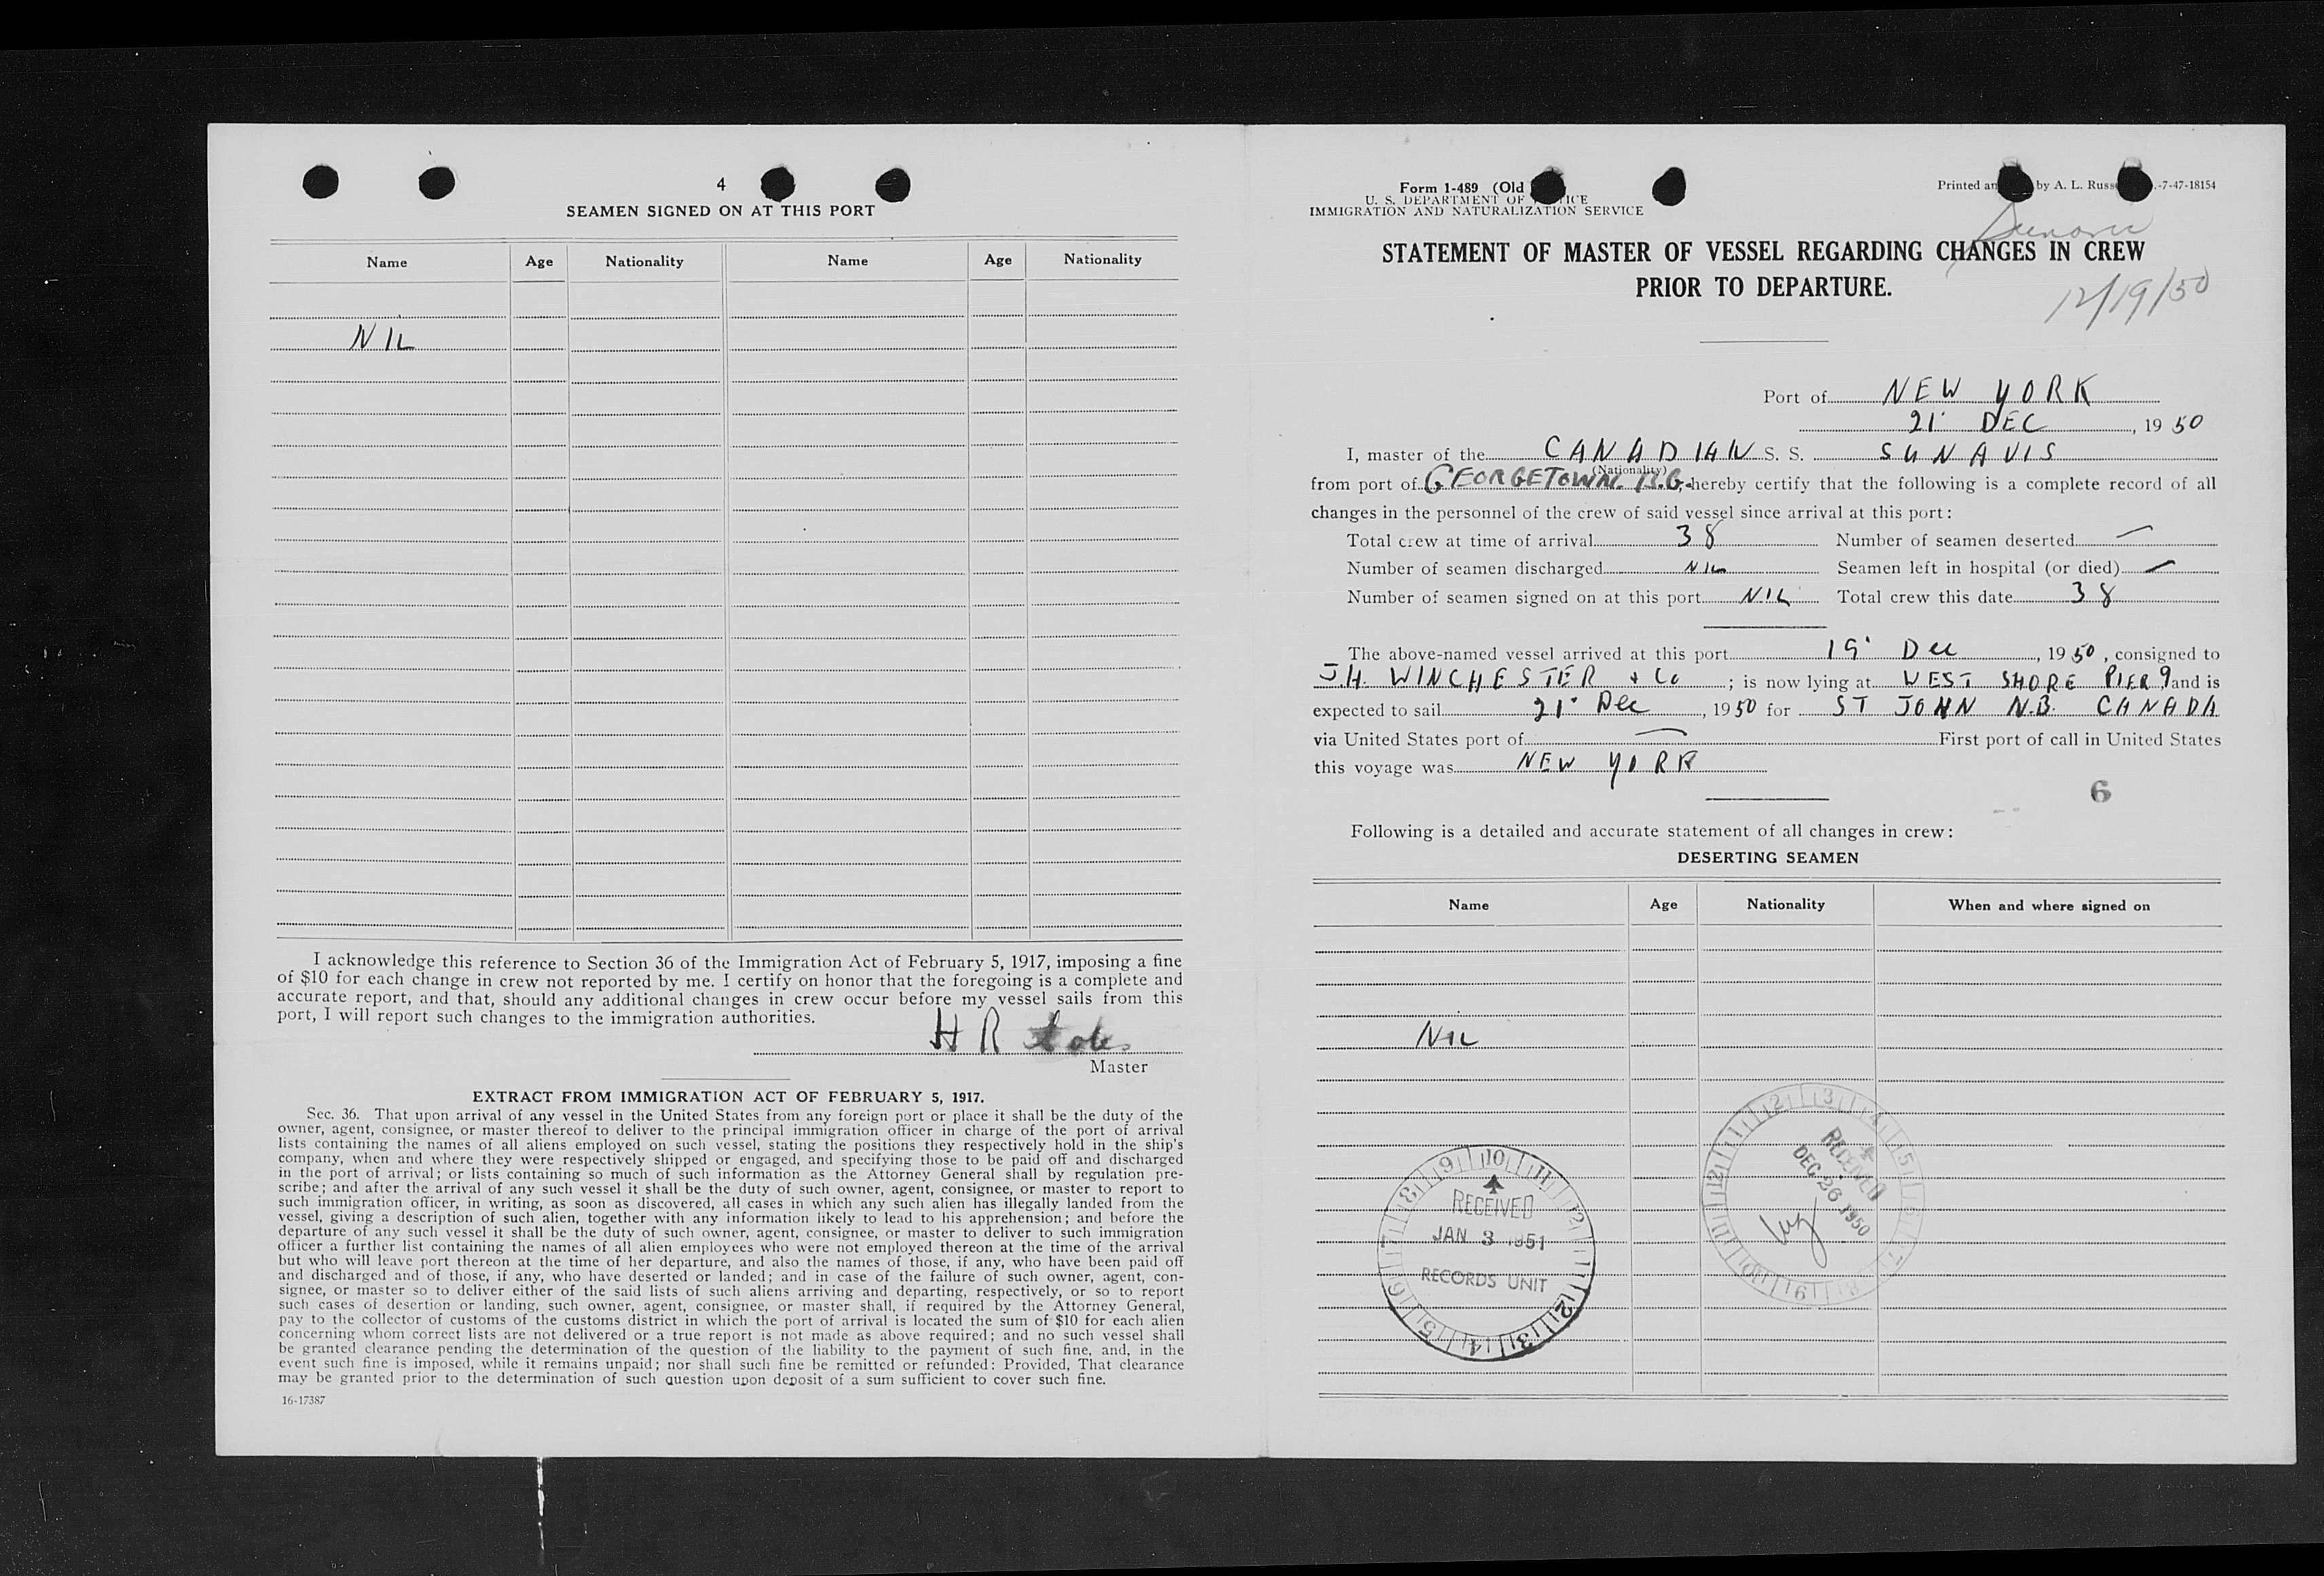 4
SEAMEN SIGNED ON AT THIS PORT
Name Age Nationality Name Age Nationality
NIL
I acknowledge this reference to Section 36 of the Immigration Act of February 5, 1917, imposing a fine
of $10 for each change in crew not reported by me. I certify on honor that the foregoing is a complete and
accurate report, and that, should any additional changes in crew occur before my vessel sails from this
port, I will report such changes to the immigration authorities.
H R
Master
EXTRACT FROM IMMIGRATION ACT OF FEBRUARY 5, 1917.
Sec. 36. That upon arrival of any vessel in the United States from any foreign port or place it shall be the duty of the
owner, agent, consignee, or master thereof to deliver to the principal immigration officer in charge of the port of arrival
lists containing the names of all aliens employed on such vessel, stating the positions they respectively hold in the ship's
company, when and where they were respectively shipped or engaged, and specifying those to be paid off and discharged
in the port of arrival; or lists containing so much of such information as the Attorney General shall by regulation pre-
scribe; and after the arrival of any such vessel it shall be the duty of such owner, agent, consignee, or master to report to
such immigration officer, in writing, as soon as discovered, all cases in which any such alien has illegally landed from the
vessel, giving a description of such alien, together with any information likely to lead to his apprehension; and before the
departure of any such vessel it shall be the duty of such owner, agent, consignee, or master to deliver to such immigration
officer a further list containing the names of all alien employees who were not employed thereon at the time of the arrival
but who will leave port thereon at the time of her departure, and also the names of those, if any, who have been paid off
and discharged and of those, if any, who have deserted or landed; and in case of the failure of such owner, agent, con-
signee, or master so to deliver either of the said lists of such aliens arriving and departing, respectively, or so to report
such cases of desertion or landing, such owner, agent, consignee, or master shall, if required by the Attorney General,
pay to the collector of customs of the customs district in which the port of arrival is located the sum of $10 for each alien
concerning whom correct lists are not delivered or a true report is not made as above required; and no such vessel shall
be granted clearance pending the determination of the question of the liability to the payment of such fine, and, in the
event such fine is imposed, while it remains unpaid; nor shall such fine be remitted or refunded: Provided, That clearance
may be granted prior to the determination of such question upon deposit of a sum sufficient to cover such fine.
16-17387
Form 1-489 (Old
U. S. DEPARTMENT OF
IMMIGRATION AND NATURALIZATION SERVICE
Printed by A. L. -7-47-18154
STATEMENT OF MASTER OF VESSEL REGARDING CHANGES IN CREW
PRIOR TO DEPARTURE.
12/19/50
Port of NEW YORK
21 DEC, 1950
I, master of the CANADIAN S. S. SUNAVIS
(Nationality)
from port of GEORGETOWN B.G. hereby certify that the following is a complete record of all
changes in the personnel of the crew of said vessel since arrival at this port:
Total crew at time of arrival 38 Number of seamen deserted —
Number of seamen discharged NIL Seamen left in hospital (or died) —
Number of seamen signed on at this port NIL Total crew this date 38
The above-named vessel arrived at this port 19 Dec, 1950, consigned to
J.H. WINCHESTER & Co; is now lying at WEST SHORE PIER 9 and is
expected to sail 21 Dec, 1950 for ST JOHN N.B. CANADA
via United States port of — First port of call in United States
this voyage was NEW YORK
6
Following is a detailed and accurate statement of all changes in crew:
DESERTING SEAMEN
Name Age Nationality When and where signed on
NIL
RECEIVED
DEC 26 1950
RECEIVED
JAN 3 1951
RECORDS UNIT